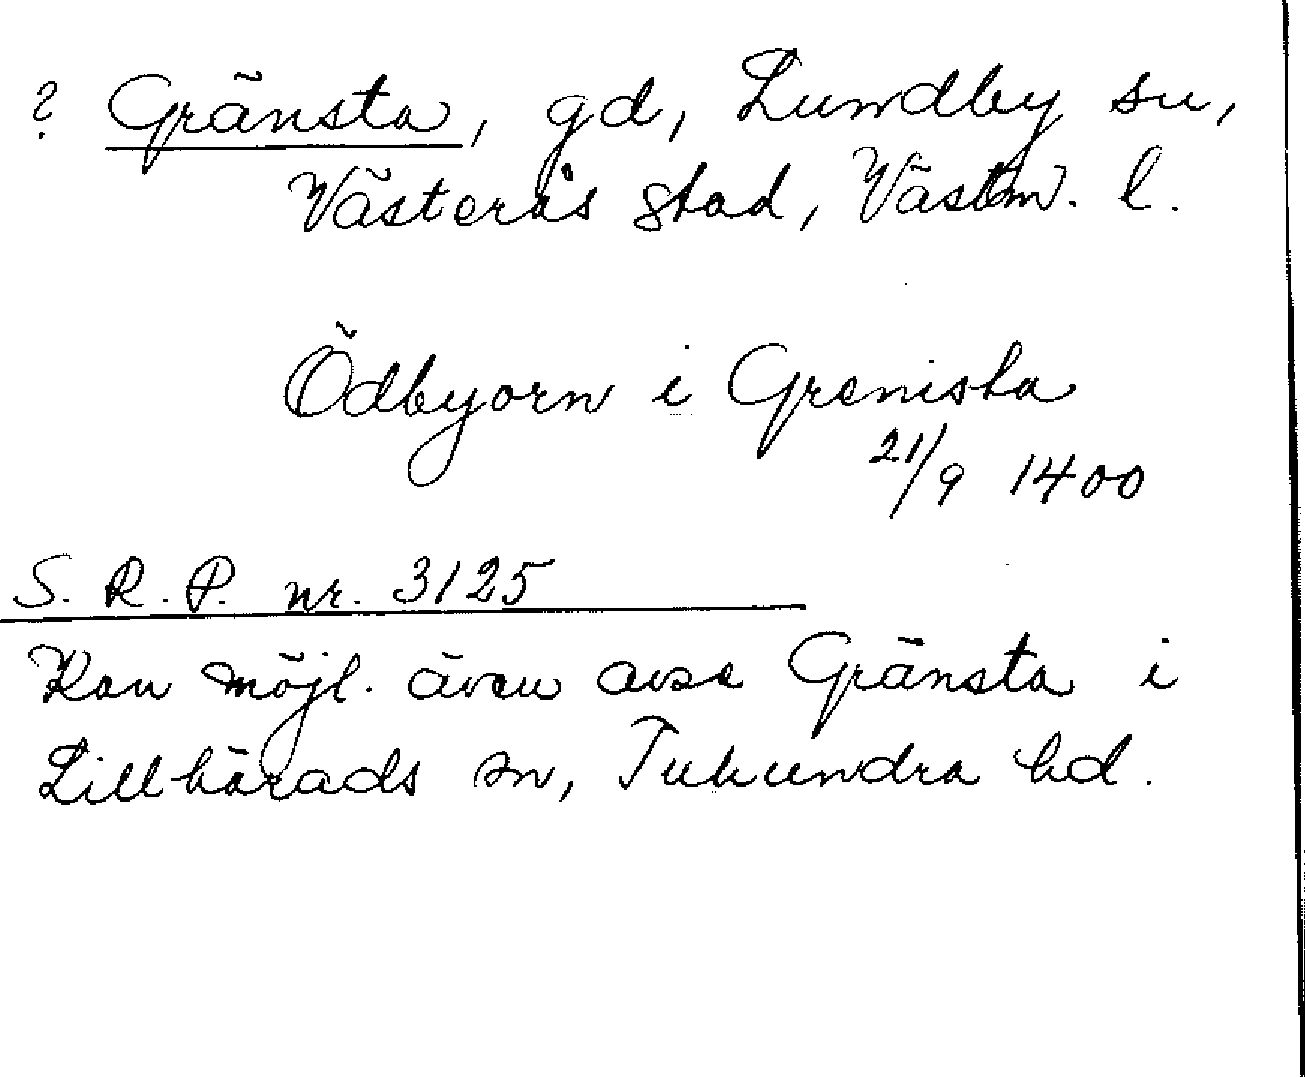 ? Gränsta, gd, Lundby sn,
Västerås stad, Västm. l.
Ödbyorn i Grenista
21/9 1400
S. R. P. nr. 3125
Kan möjl. även avse Gränsta i
Lillhärads sn, Tuhundra hd.